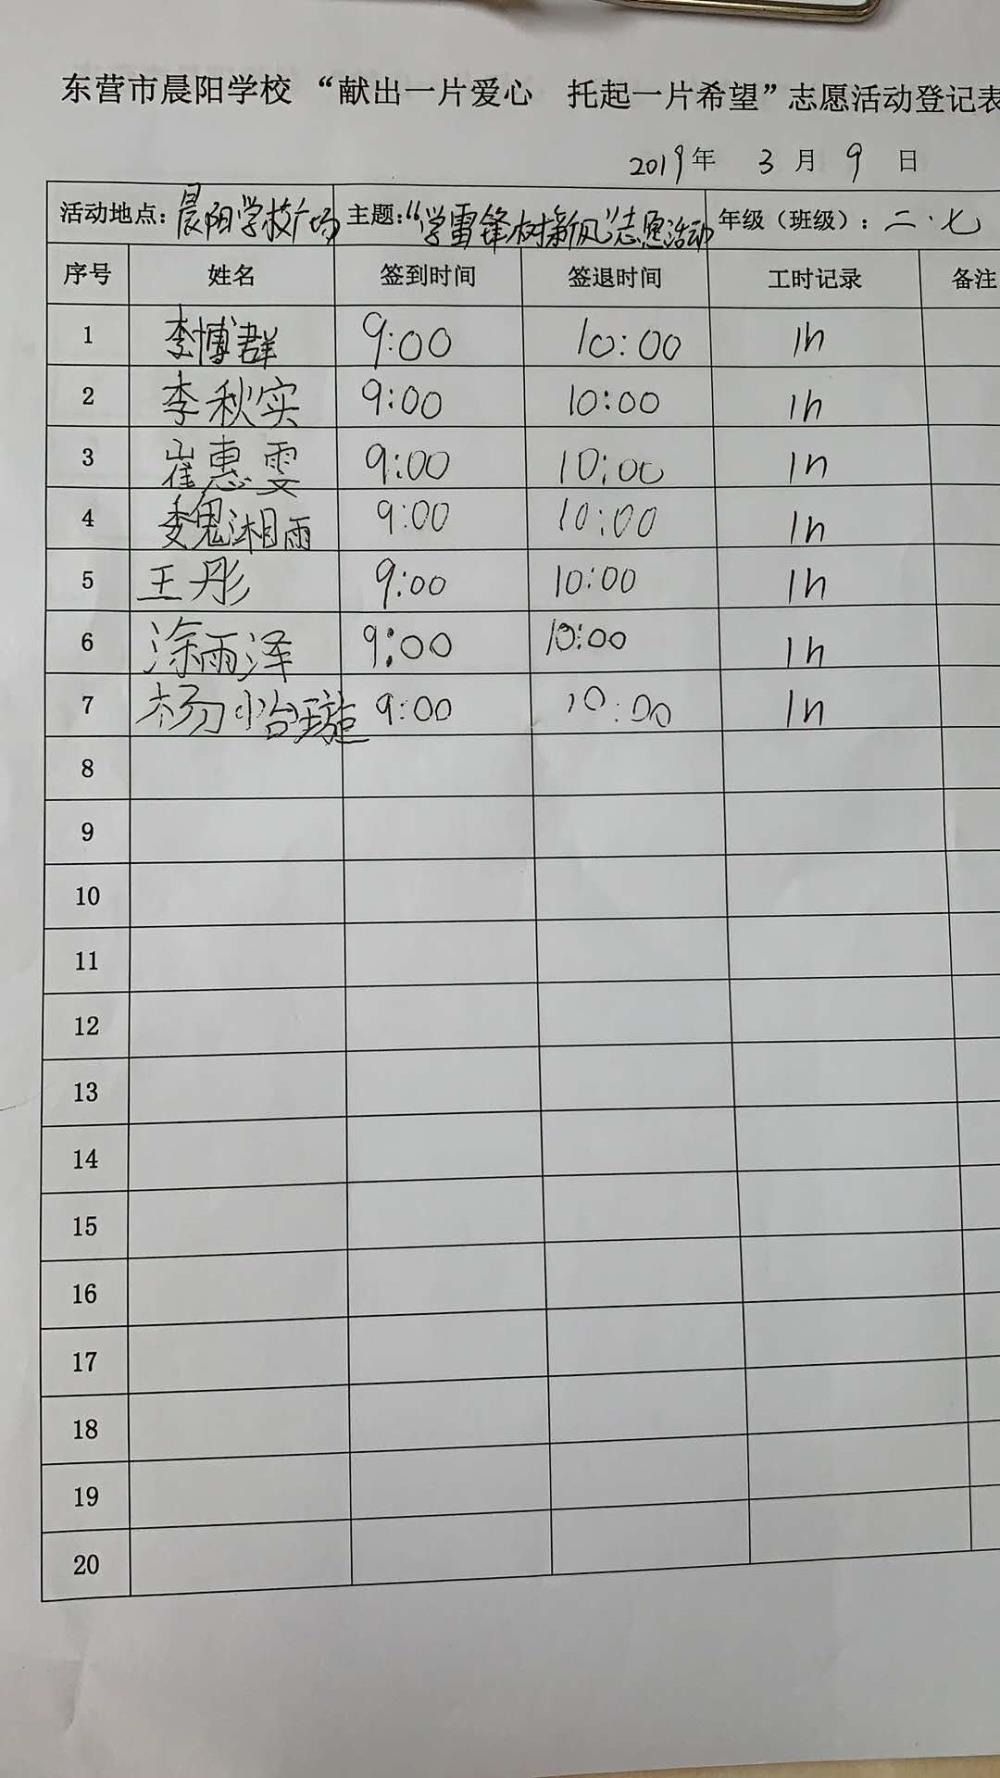 东营市晨阳学校 “献出一片爱心 托起一片希望”志愿活动登记表
2019年 3 月 9 日
活动地点：晨阳学校广场 主题：“学雷锋树新风”志愿活动 年级（班级）：二.七
序号 姓名 签到时间 签退时间 工时记录 备注
1 李博群 9:00 10:00 1h
2 李秋实 9:00 10:00 1h
3 崔惠雯 9:00 10:00 1h
4 魏湘雨 9:00 10:00 1h
5 王彤 9:00 10:00 1h
6 涂雨泽 9:00 10:00 1h
7 杨怡璇 9:00 10:00 1h
8
9
10
11
12
13
14
15
16
17
18
19
20